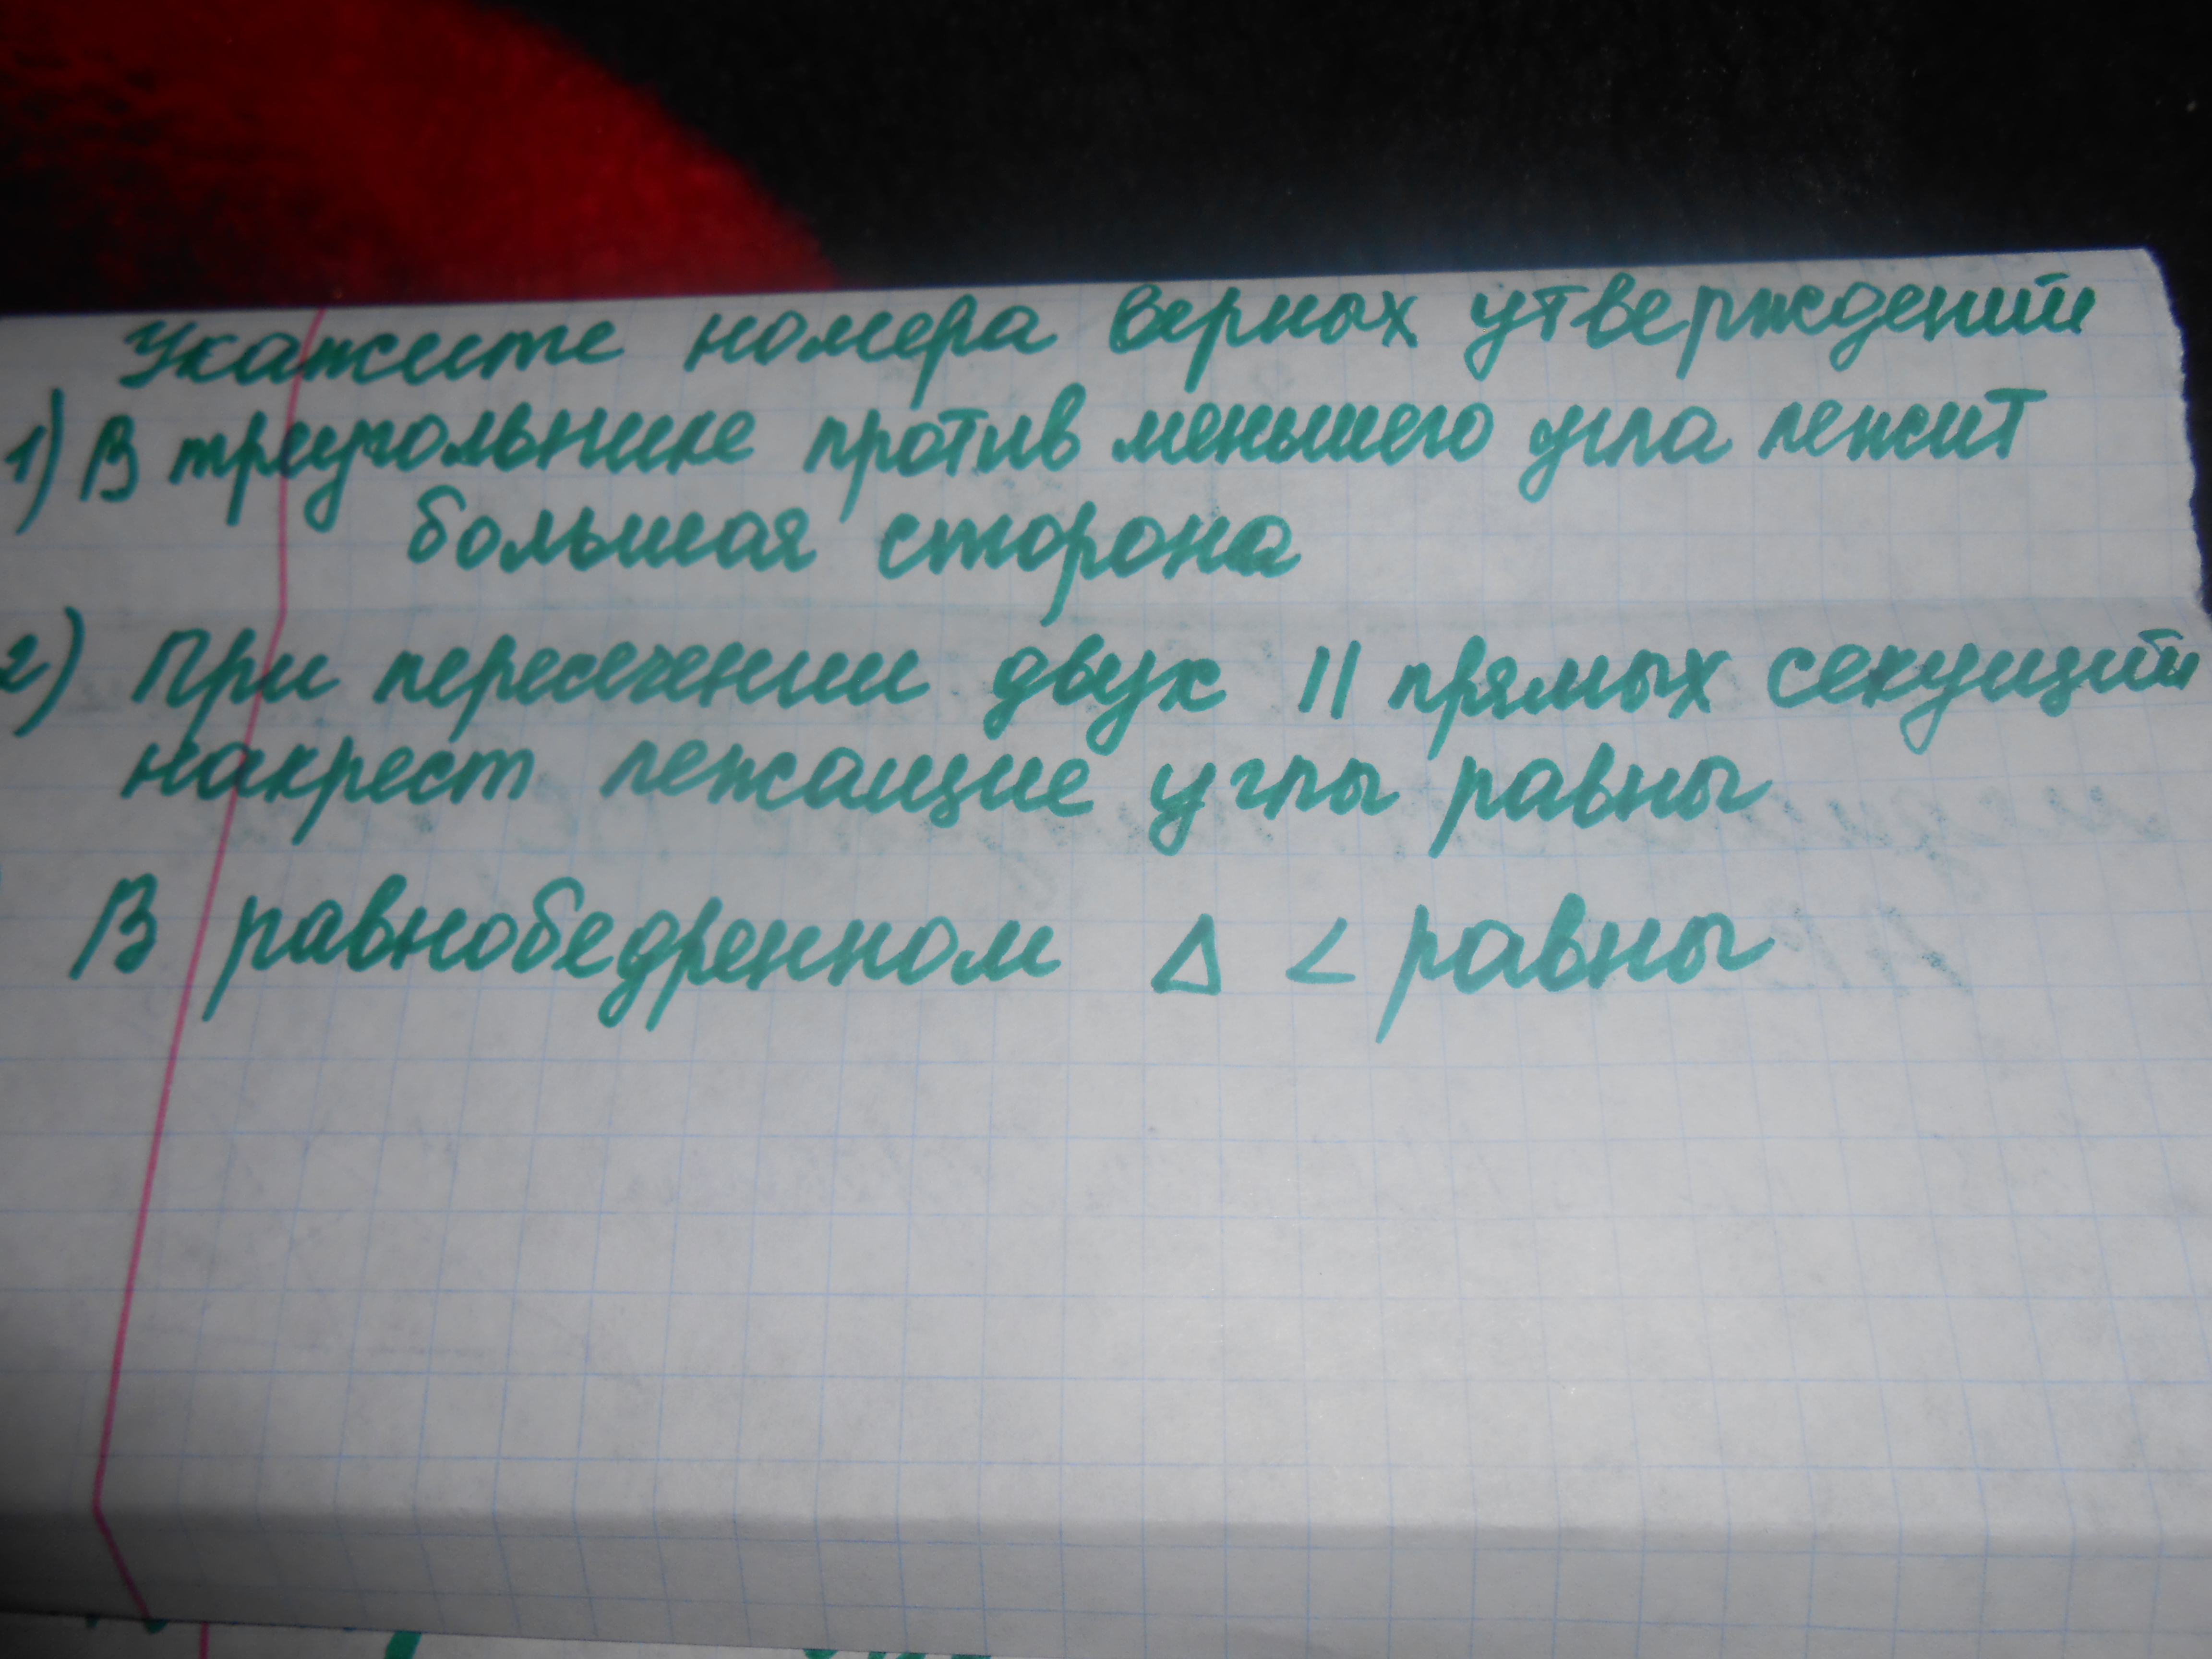 Укажите номера верных утверждений
1) В треугольнике против меньшего угла лежит
большая сторона
2) При пересечении двух || прямых секущий
накрест лежащие углы равны
В равнобедренном △ < равны